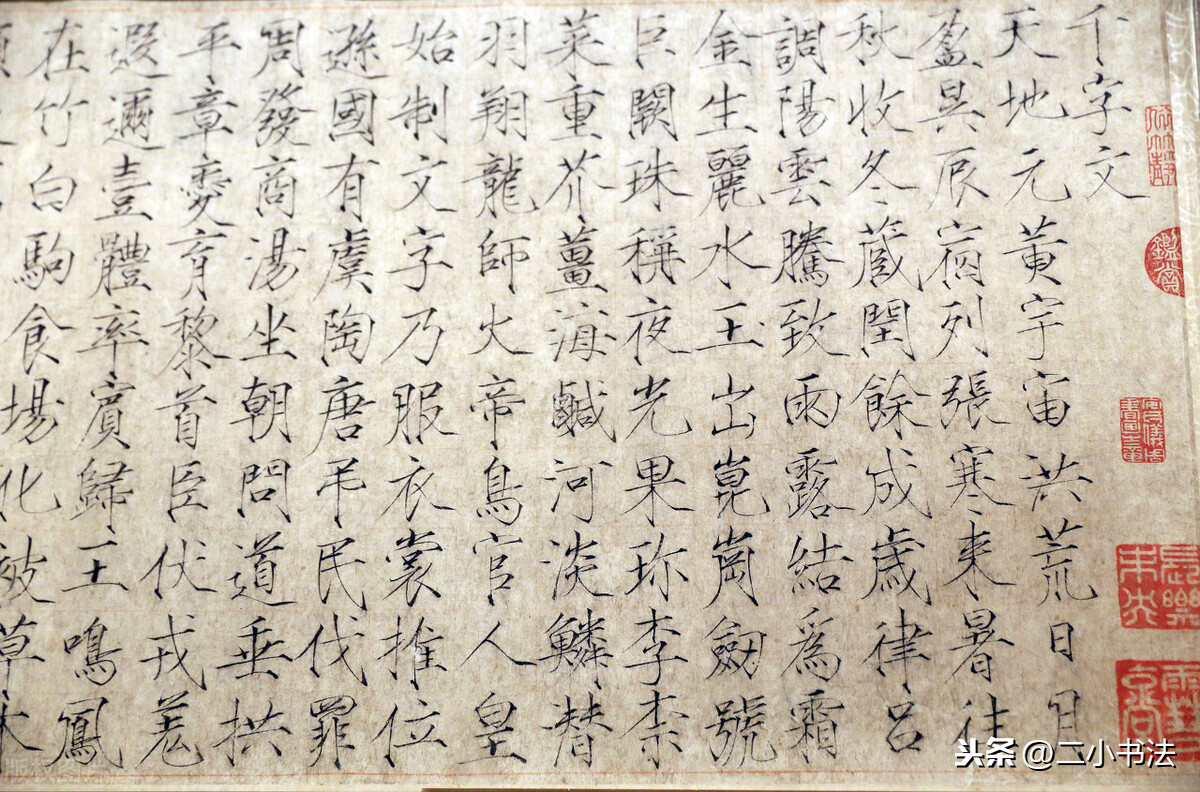 千字文
天地元黄宇宙洪荒日月
盈昃辰宿列張寒来暑往
秋收冬蔵閏餘成歳律吕
調陽雲騰致雨露結爲霜
金生麗水玉出崑崗劒號
巨闕珠稱夜光果珎李柰
菜重芥薑海鹹河淡鱗潜
羽翔龍師火帝鳥官人皇
始制文字乃服衣裳推位
遜國有虞陶唐弔民伐罪
周發商湯坐朝問道垂拱
平章愛育黎首臣伏戎羌
遐邇壹體率賔歸王鳴鳳
在竹白駒食場化被草木
鑑賞
头条 @二小书法